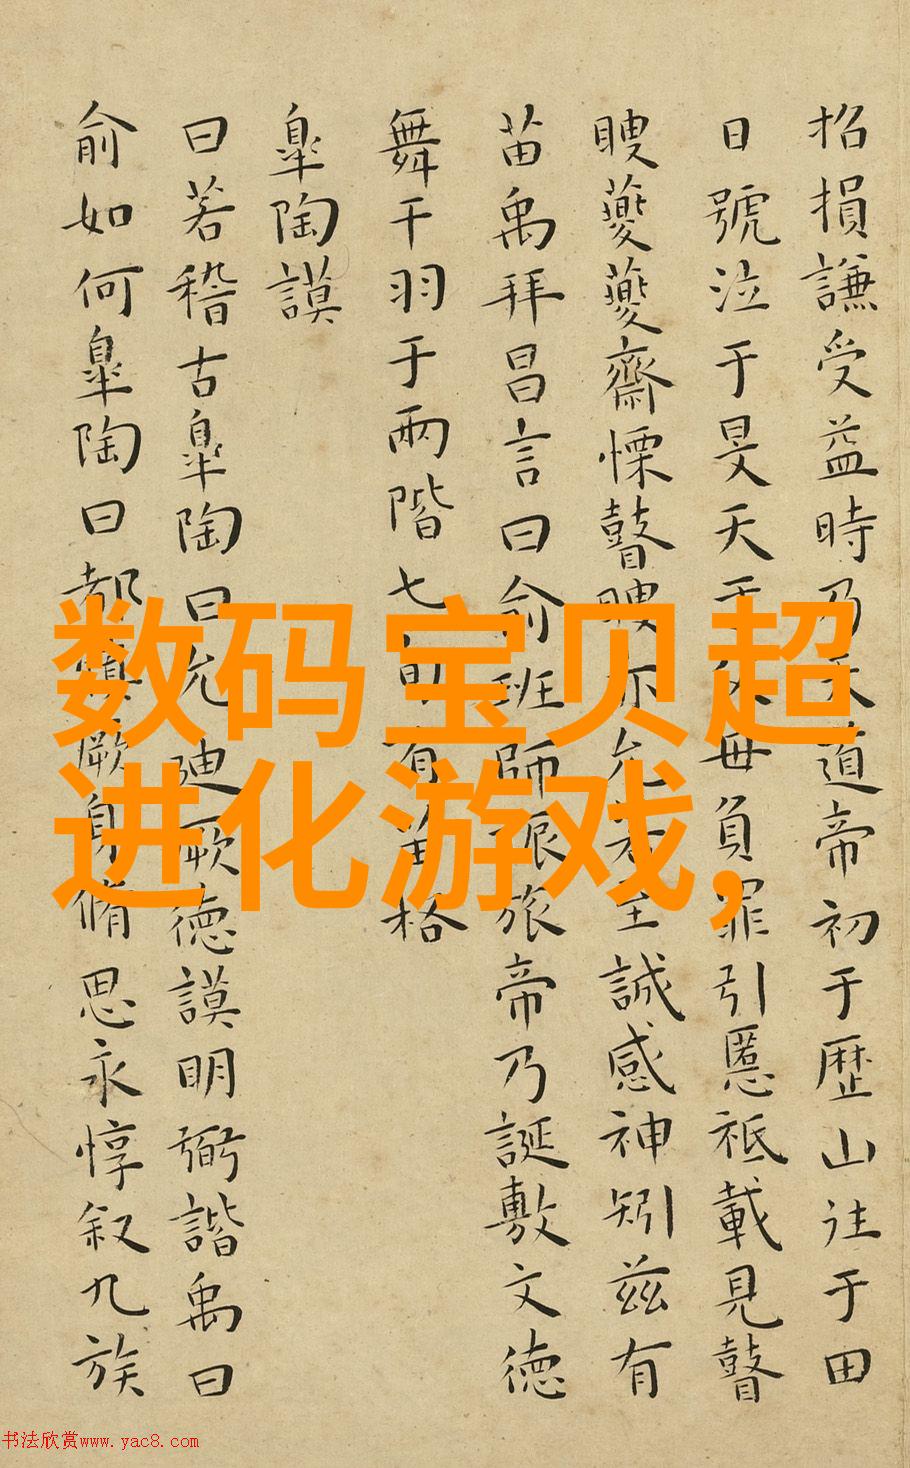 招損謙受益時乃天道帝初于歴山往于田
日號泣于旻天于父母負罪引慝祗載見瞽
瞍夔夔齋慄瞽瞍亦允若至誠感神矧茲有
苗禹拜昌言曰俞班師振旅帝乃誕敷文德
舞干羽于兩階七旬有苗格
皐陶謨
曰若稽古皐陶曰允迪厥德謨明弼諧禹曰
俞如何皐陶曰都慎厥身脩思永惇叙九族
数码宝贝超
进化游戏,
书法欣赏www.yac8.com